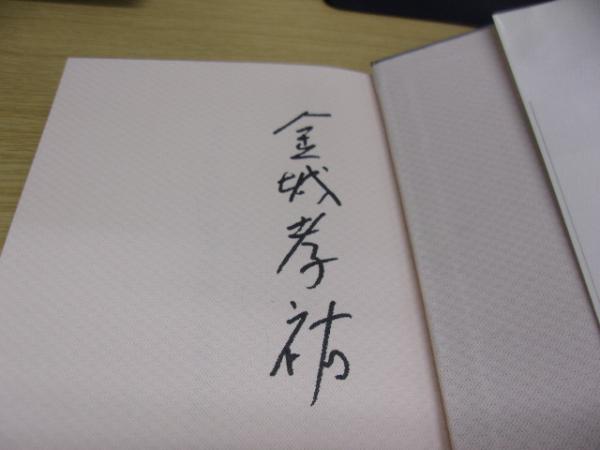 金城孝祐